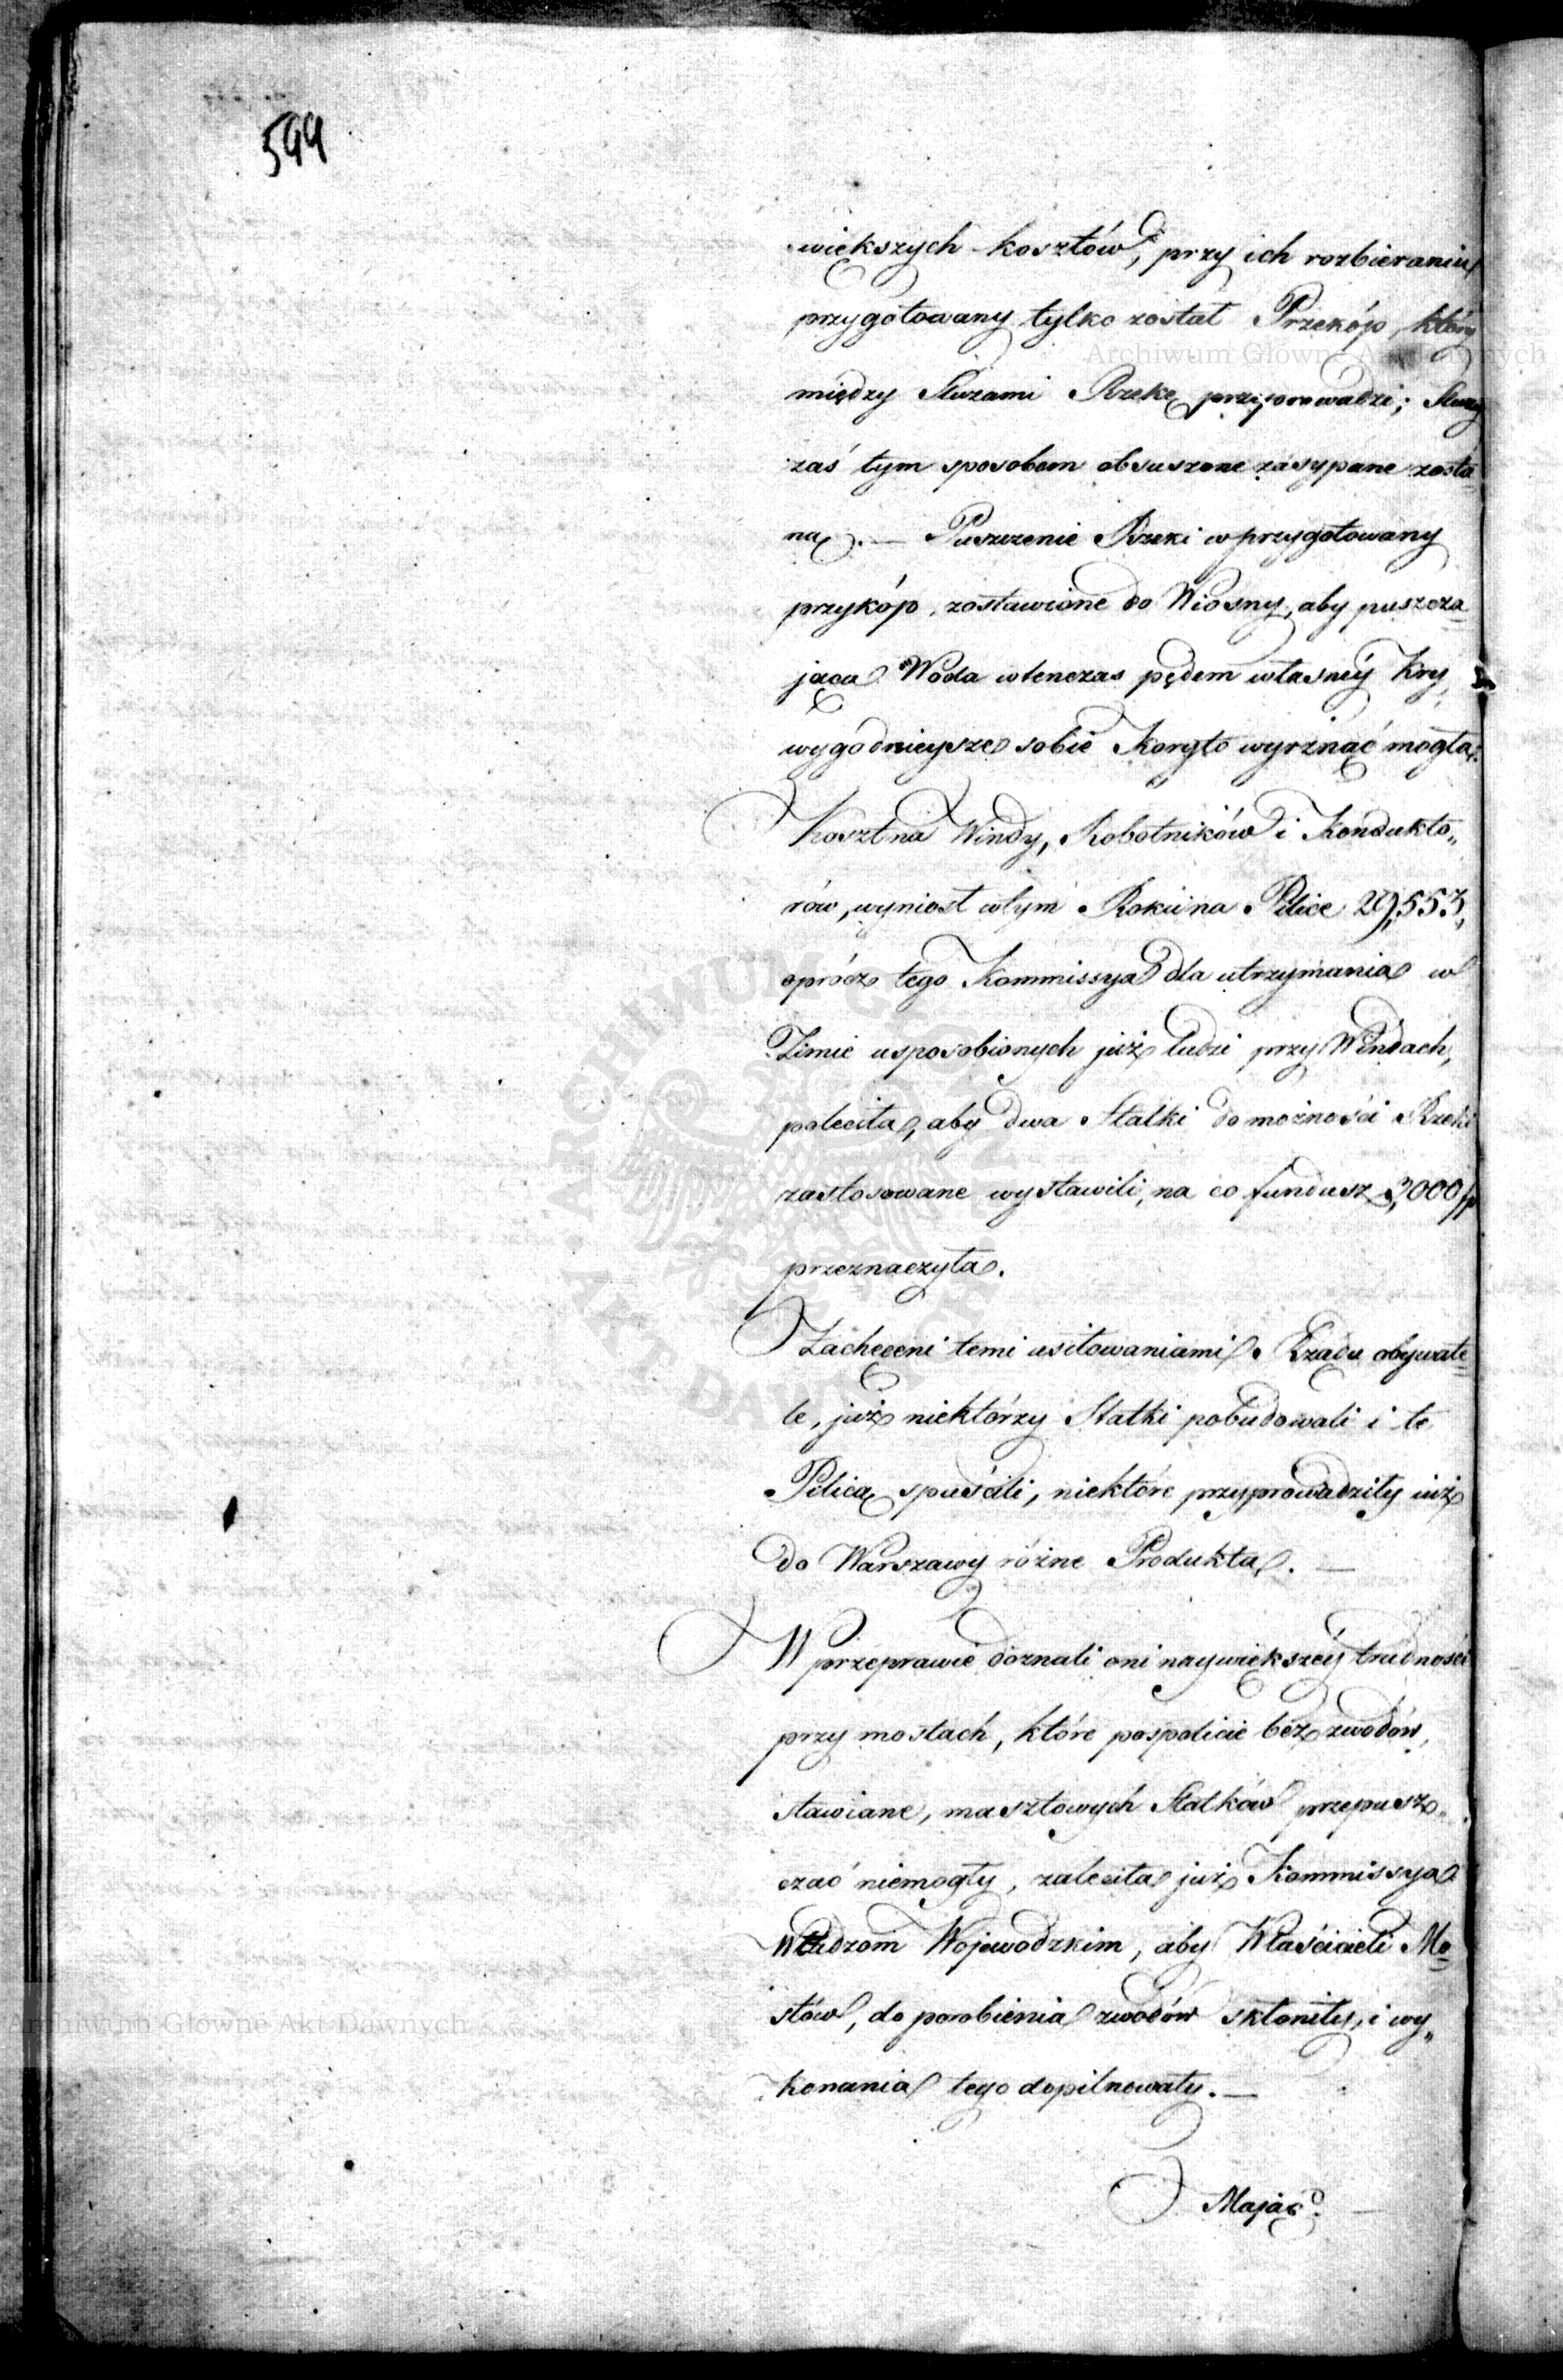 599
większych kosztów, przy ich rozbieraniu
przygotowany tylko został Przekóp, który
między Sluzami Rzekę przeprowadzi; Sluzy
zaś tym sposobem obsuszone zasypane zosta=
ną. — Puszczenie Rzeki w przygotowany
przykóp, zostawione do Wiosny, aby puszcza=
jąca Woda wtenczas pędem własnéy Kry,
wygodnieysze sobie Koryto wyrznąć mogła.
Koszt na Windy, Robotników i Kondukto„
rów, wyniosł w tym Roku na Pilice 29,553,
oprócz tego Kommissya dla utrzymania w
Zimie usposobionych już ludzi przy Windach,
poleciła, aby dwa Statki do możności Rzeki
zastosowane wystawili, na co fundusz 3,000 fp
przeznaczyła.
Zachęceni temi usiłowaniami Rządu obywate=
le, już niektórzy Statki pobudowali i te
Pilicą spuścili, niektóre przyprowadziły już
do Warszawy różne Produkta. —
W przeprawie doznali oni naywiększéy trudności
przy mostach, które pospolicie bez zwodów,
stawiane, masztowych Statków przepusz„
czać niemogły, zaleciła już Kommissya
Władzom Wojewodzkim, aby Właścicieli Mo=
stów, do porobienia zwodów skłoniły, i wy„
konania tego dopilnowały. —
Mając
Archiwum Główne Akt Dawnych
Archiwum Główne Akt Dawnych
ARCHIWUM GŁÓWNE AKT DAWNYCH